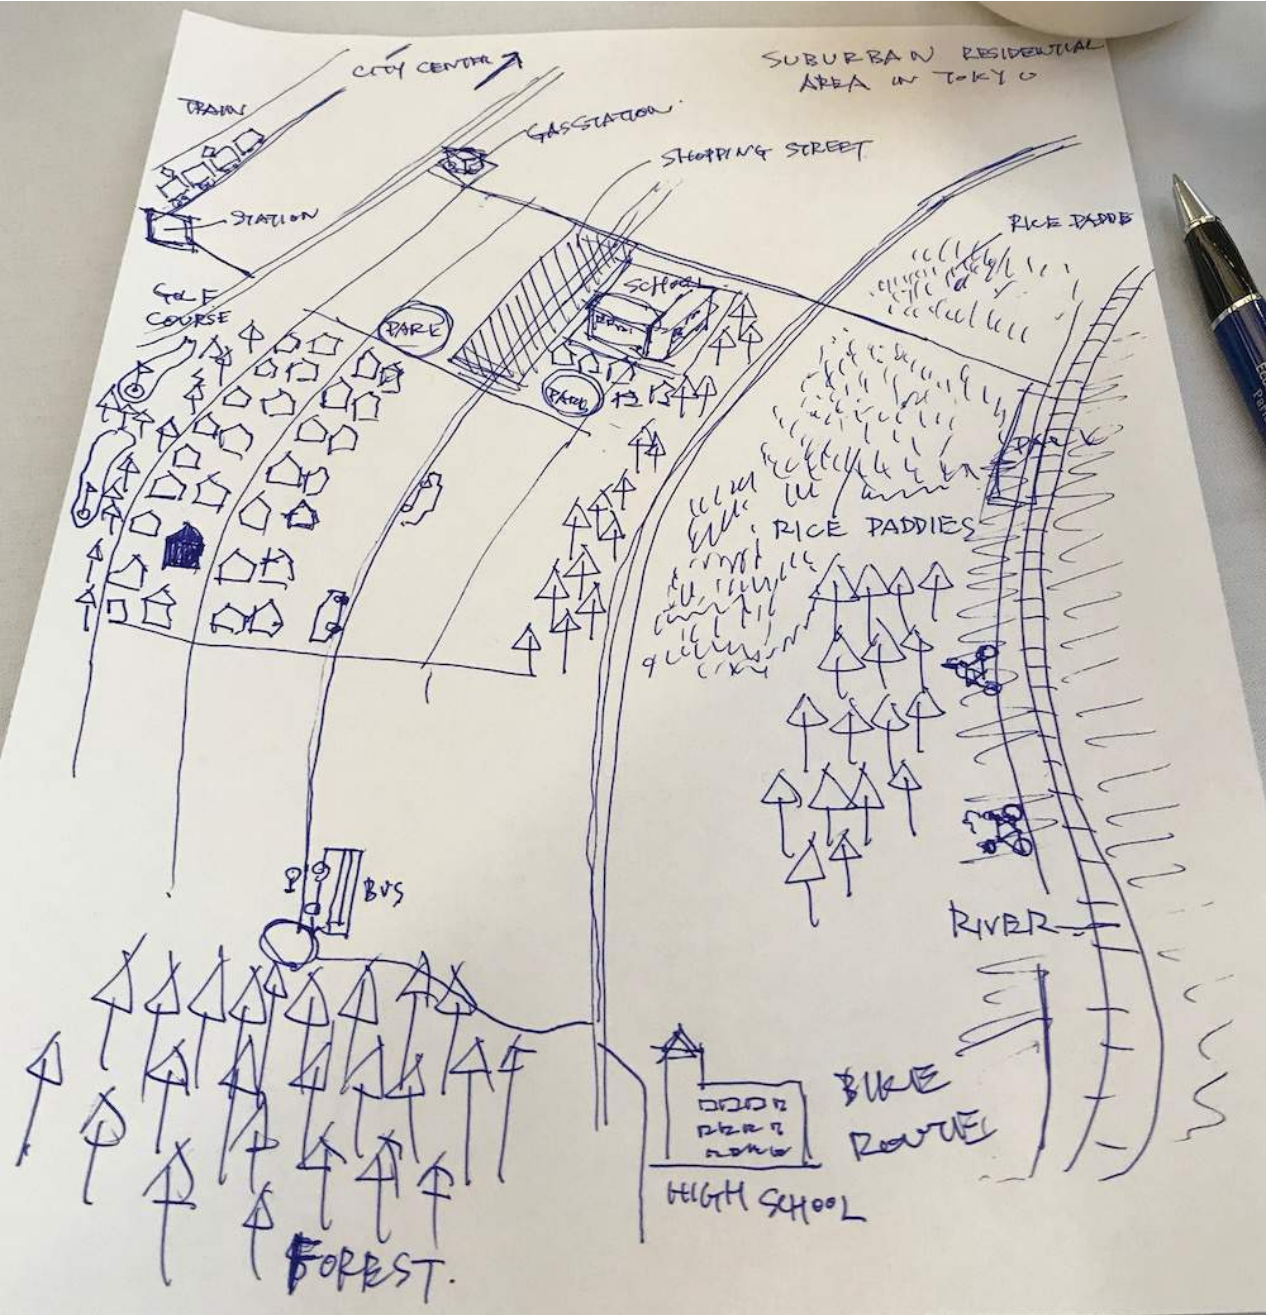 CITY CENTER
SUBURBAN RESIDENTIAL
AREA IN TOKYO
TRAIN
GAS STATION
SHOPPING STREET
STATION
RICE PADDE
GOLF
COURSE
SCHOOL
PARK
PARK
PARK
RICE PADDIES
BUS
RIVER
BIKE
ROUTE
HIGH SCHOOL
FOREST.